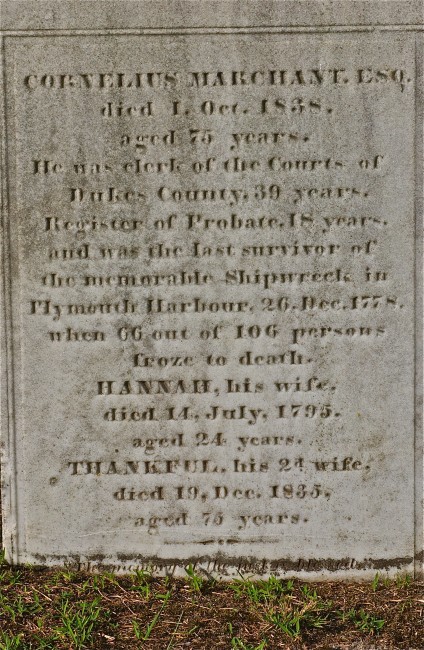 CORNELIUS MARCHANT. ESQ.
died 1. Oct. 1838.
aged 75 years.
He was clerk of the Courts of
Dukes County, 39 years.
Register of Probate, 18 years.
and was the last survivor of
the memorable Shipwreck in
Plymouth Harbour, 26. Dec. 1778.
when 66 out of 106 persons
froze to death.
HANNAH, his wife,
died 14, July, 1795.
aged 24 years.
THANKFUL, his 2d wife,
died 19, Dec. 1835,
aged 75 years.